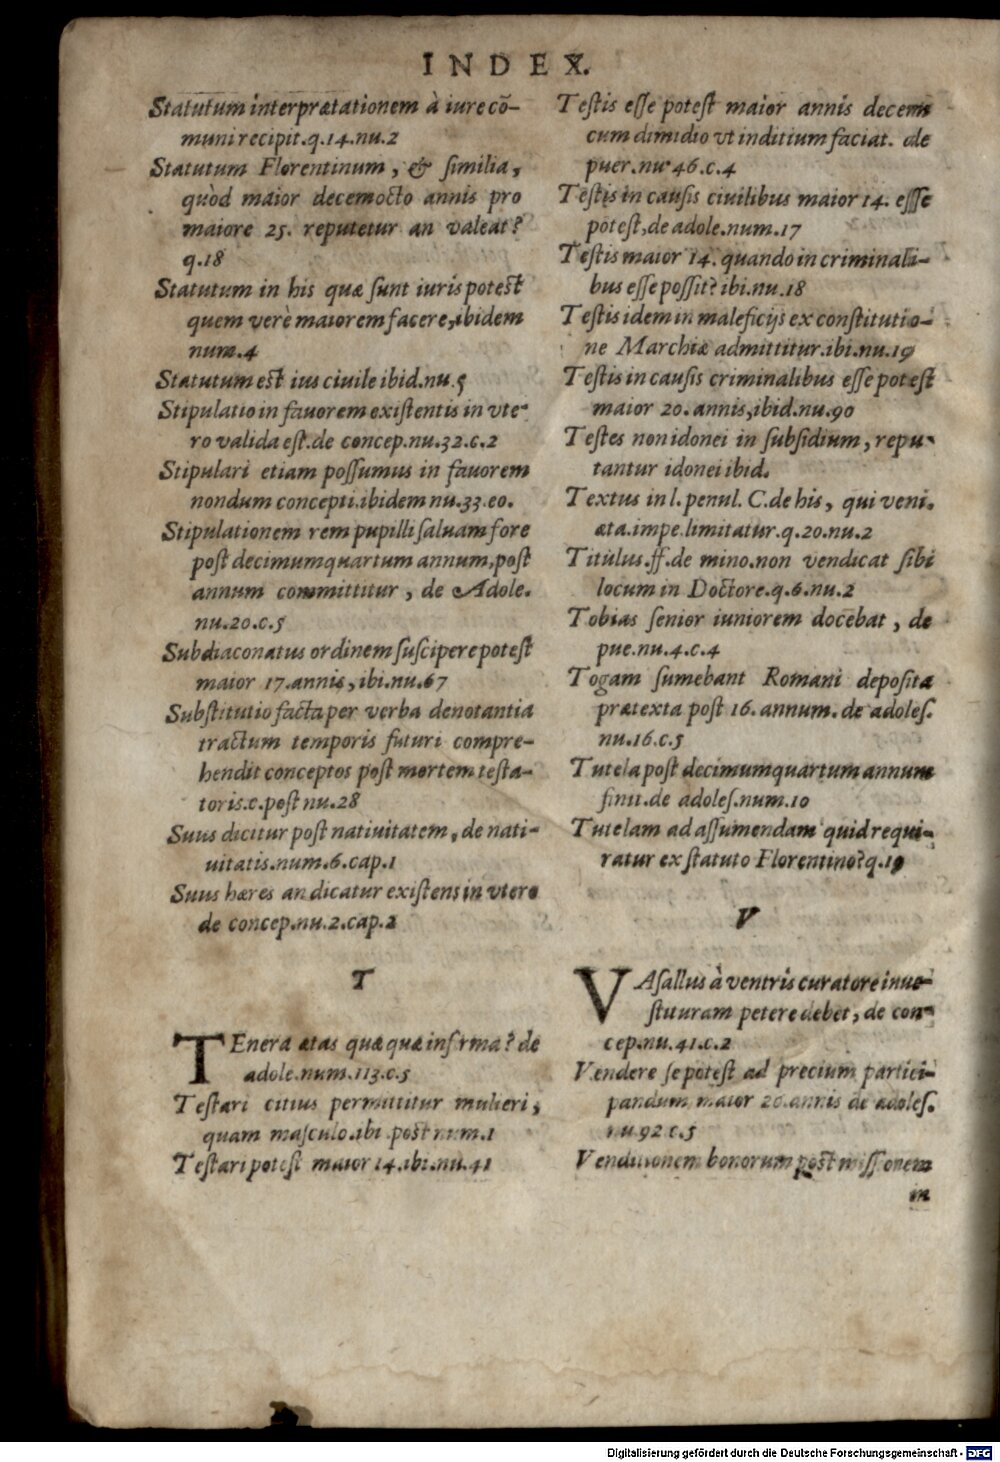 INDEX.
Statutum interprætationem à iure cō-
muni recipit.q.14.nu.2
Statutum Florentinum, & similia,
quòd maior decemocto annis pro
maiore 25. reputetur an valeat?
q.18
Statutum in his quæ sunt iuris potest
quem verè maiorem facere,ibidem
num.4
Statutum est ius ciuile ibid.nu.5
Stipulatio in fauorem existentis in vte-
ro valida est.de concep.nu.32.c.2
Stipulari etiam possumus in fauorem
nondum concepti.ibidem nu.33.eo.
Stipulationem rem pupilli saluam fore
post decimumquartum annum,post
annum committitur, de Adole.
nu.20.c.5
Subdiaconatus ordinem suscipere potest
maior 17.annis,ibi.nu.67
Substitutio facta per verba denotantia
tractum temporis futuri compre-
hendit conceptos post mortem testa-
toris.c.post nu.28
Suus dicitur post natiuitatem, de nati-
uitatis.num.6.cap.1
Suus hæres an dicatur existens in vtero
de concep.nu.2.cap.2
T
TEnera ætas quæ quæ infirma? de
adole.num.113.c.5
Testari citius permittitur mulieri,
quam masculo.ibi.post num.1
Testari potest maior 14.ibi.nu.41
Testis esse potest maior annis decem
cum dimidio vt inditium faciat. de
puer.nu.46.c.4
Testis in causis ciuilibus maior 14. esse
potest,de adole.num.17
Testis maior 14. quando in criminali-
bus esse possit? ibi.nu.18
Testis idem in maleficijs ex constitutio-
ne Marchiæ admittitur.ibi.nu.19
Testis in causis criminalibus esse potest
maior 20. annis,ibid.nu.90
Testes non idonei in subsidium, repu-
tantur idonei ibid.
Textus in l. penul. C.de his, qui veni.
æta.impe.limitatur.q.20.nu.2
Titulus.ff.de mino.non vendicat sibi
locum in Doctore.q.6.nu.2
Tobias senior iuniorem docebat, de
pue.nu.4.c.4
Togam sumebant Romani deposita
prætexta post 16. annum. de adoles.
nu.16.c.5
Tutela post decimumquartum annum
finit.de adoles.num.10
Tutelam ad assumendam quid requi-
ratur ex statuto Florentino?q.19
V
VAsallus à ventris curatore inue-
stituram petere debet, de con-
cep.nu.41.c.2
Vendere se potest ad precium partici-
pandum maior 20.annis de adoles.
nu.92 c.5
Venditionem bonorum post missionem
in
Digitalisierung gefördert durch die Deutsche Forschungsgemeinschaft - DFG